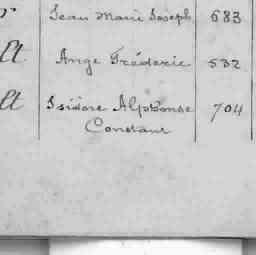 Jean Marie Joseph 683
Ange Fréderic 532
Isidore Alphonse 704
Constant